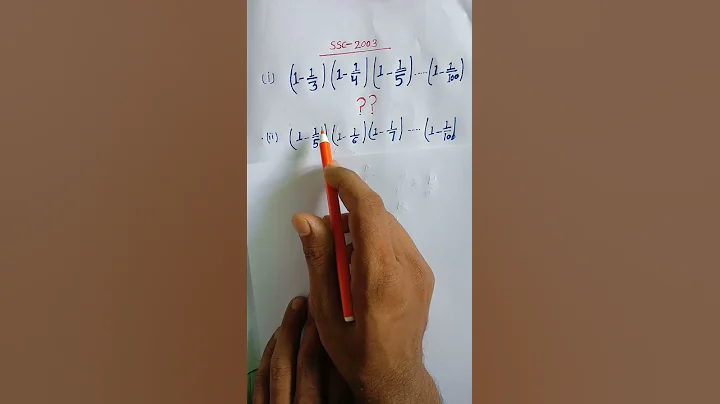 SSC-2003
(i) (1-1/3)(1-1/4)(1-1/5)----(1-1/100)
??
(ii) (1-1/5)(1-1/6)(1-1/7)----(1-1/100)